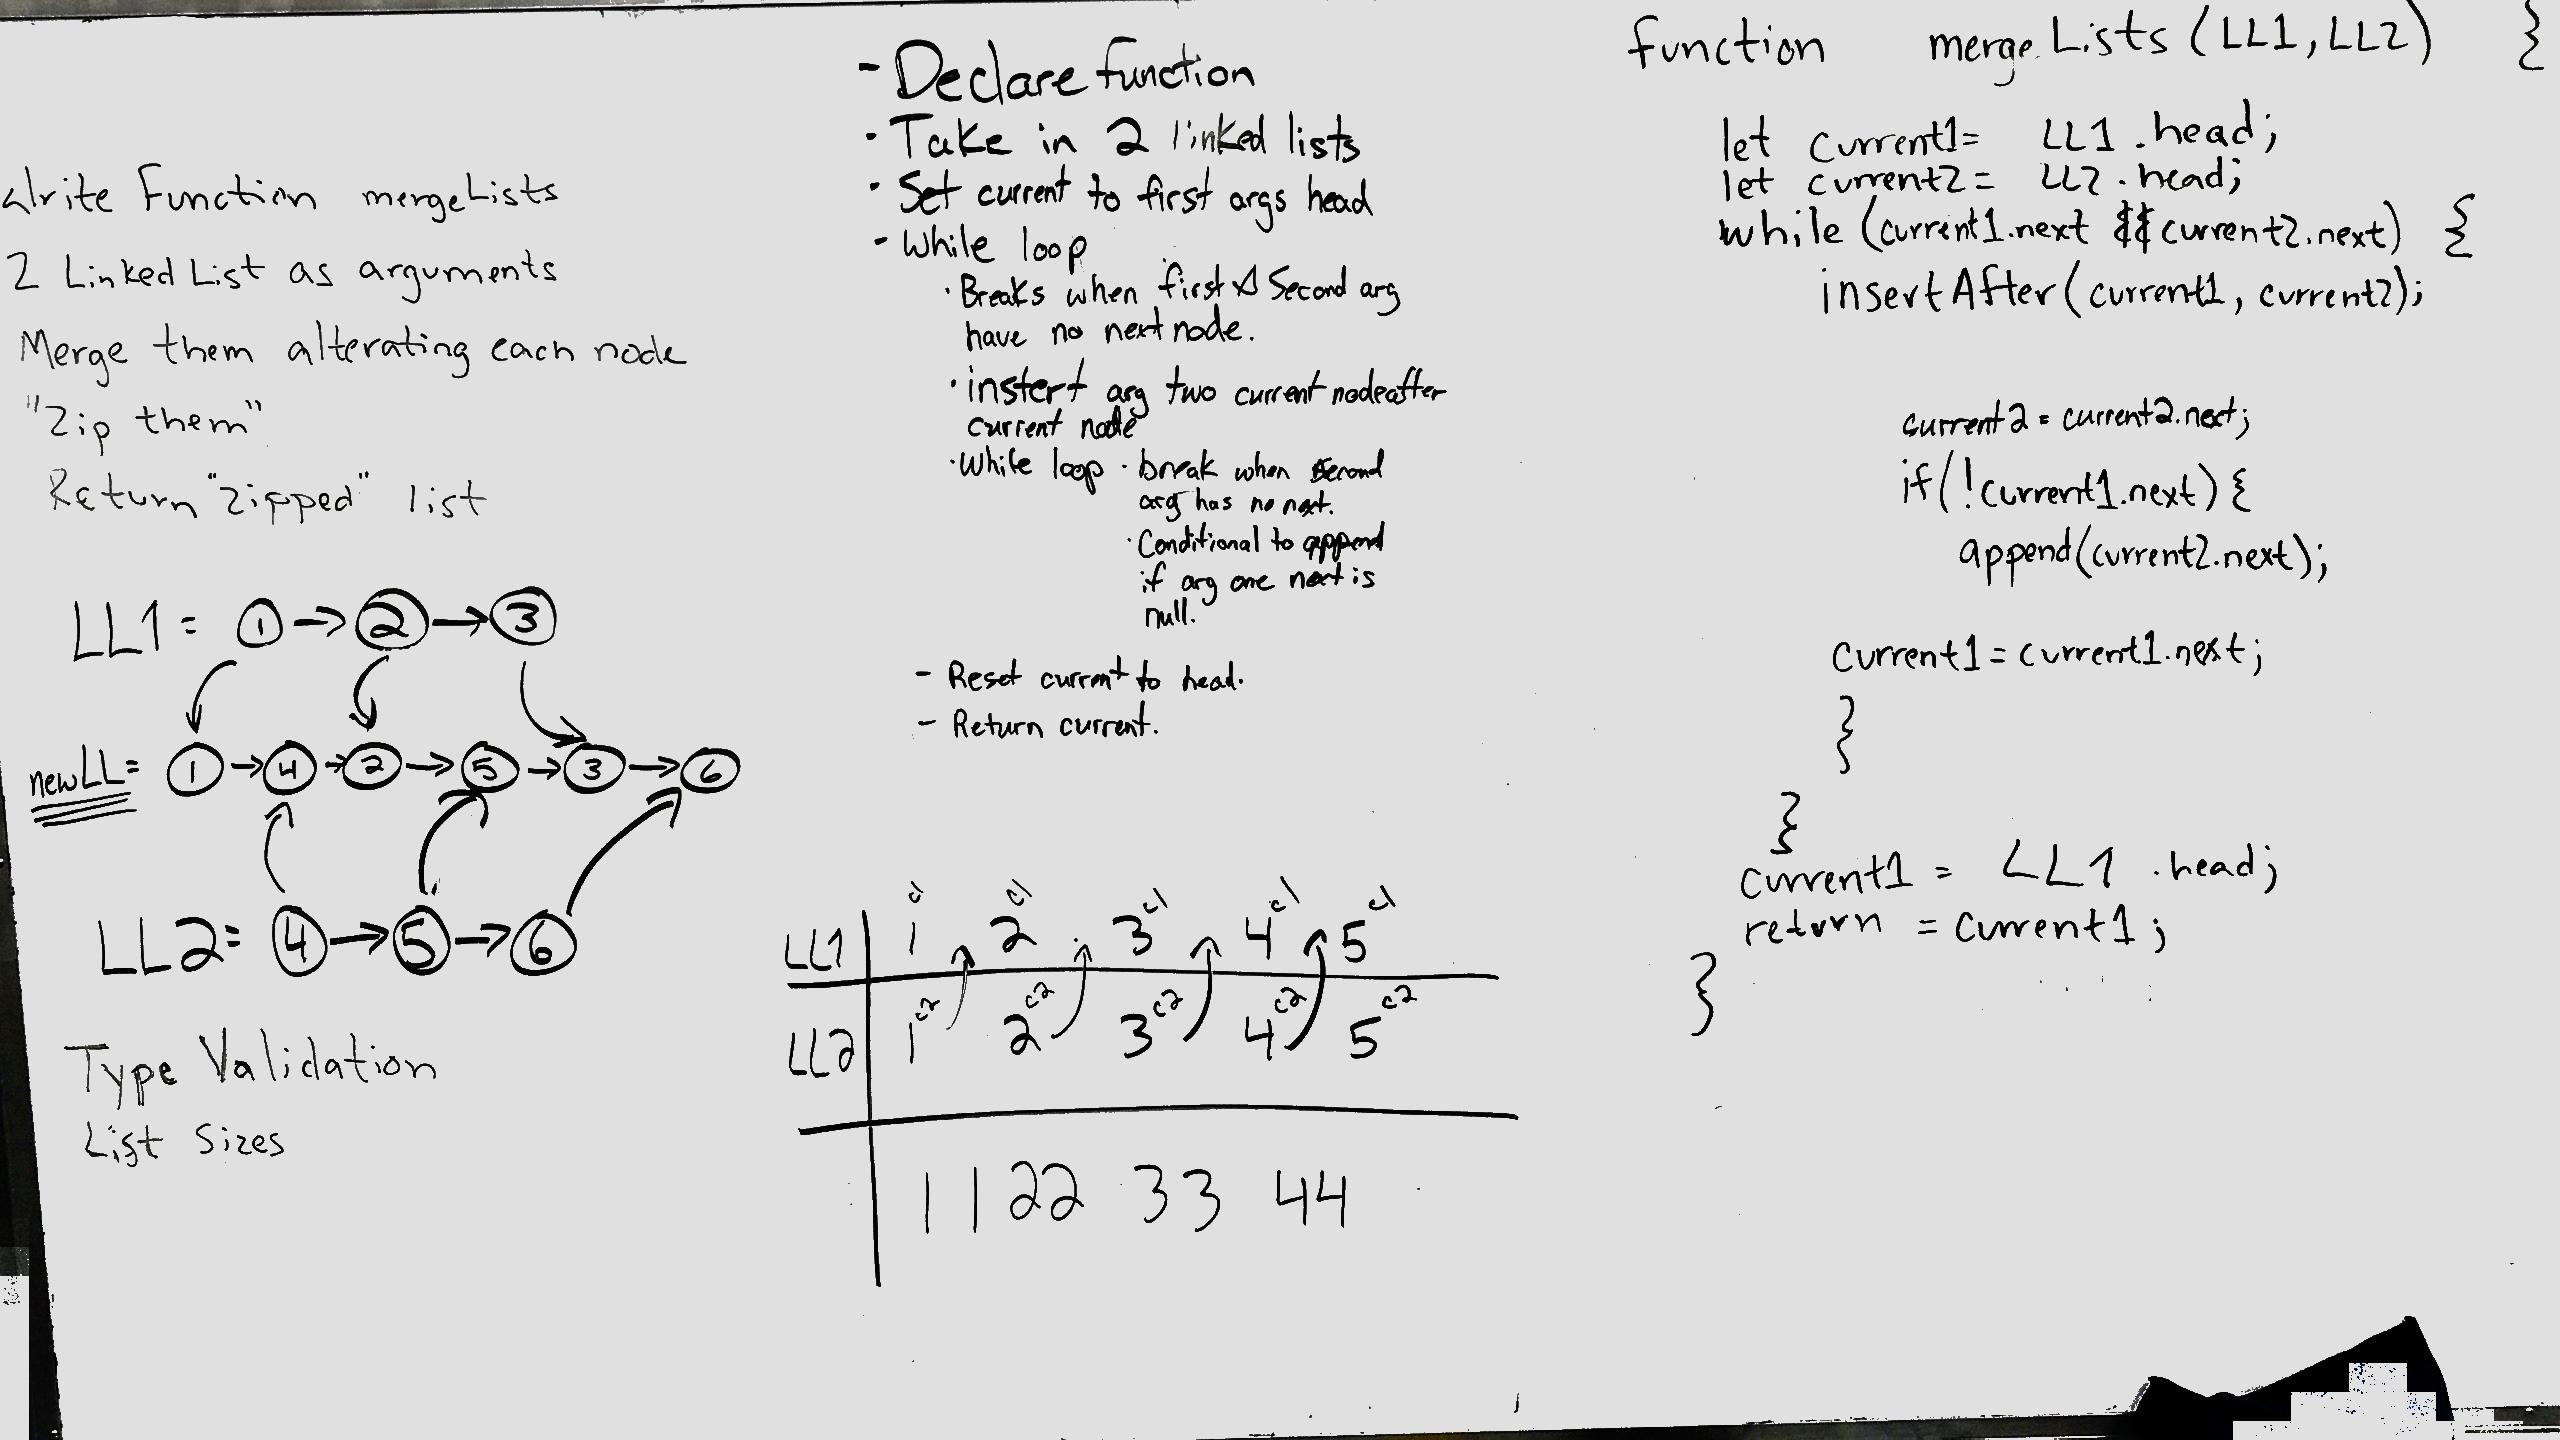 Write Function mergeLists
2 Linked List as arguments
Merge them alterating each node
"Zip them"
Return "zipped" list
LL1 = 1 → 2 → 3
newLL = 1 → 4 → 2 → 5 → 3 → 6
LL2 = 4 → 5 → 6
Type Validation
List Sizes
- Declare function
· Take in 2 linked lists
· Set current to first args head
- While loop
· Breaks when first & Second arg
have no next node.
· instert arg two current node after
current node
· While loop · break when second
arg has no next.
· Conditional to append
if arg one next is
null.
- Reset current to head.
- Return current.
c1 c1 c1 c1 c1
LL1 1 2 3 4 5
c2 c2 c2 c2 c2
LL2 1 2 3 4 5
1 1 2 2 3 3 4 4
function mergeLists (LL1, LL2) {
let current1 = LL1.head;
let current2 = LL2.head;
while (current1.next && current2.next) {
insertAfter(current1, current2);
current2 = current2.next;
if(!current1.next) {
append(current2.next);
current1 = current1.next;
}
}
current1 = LL1.head;
return = current1;
}